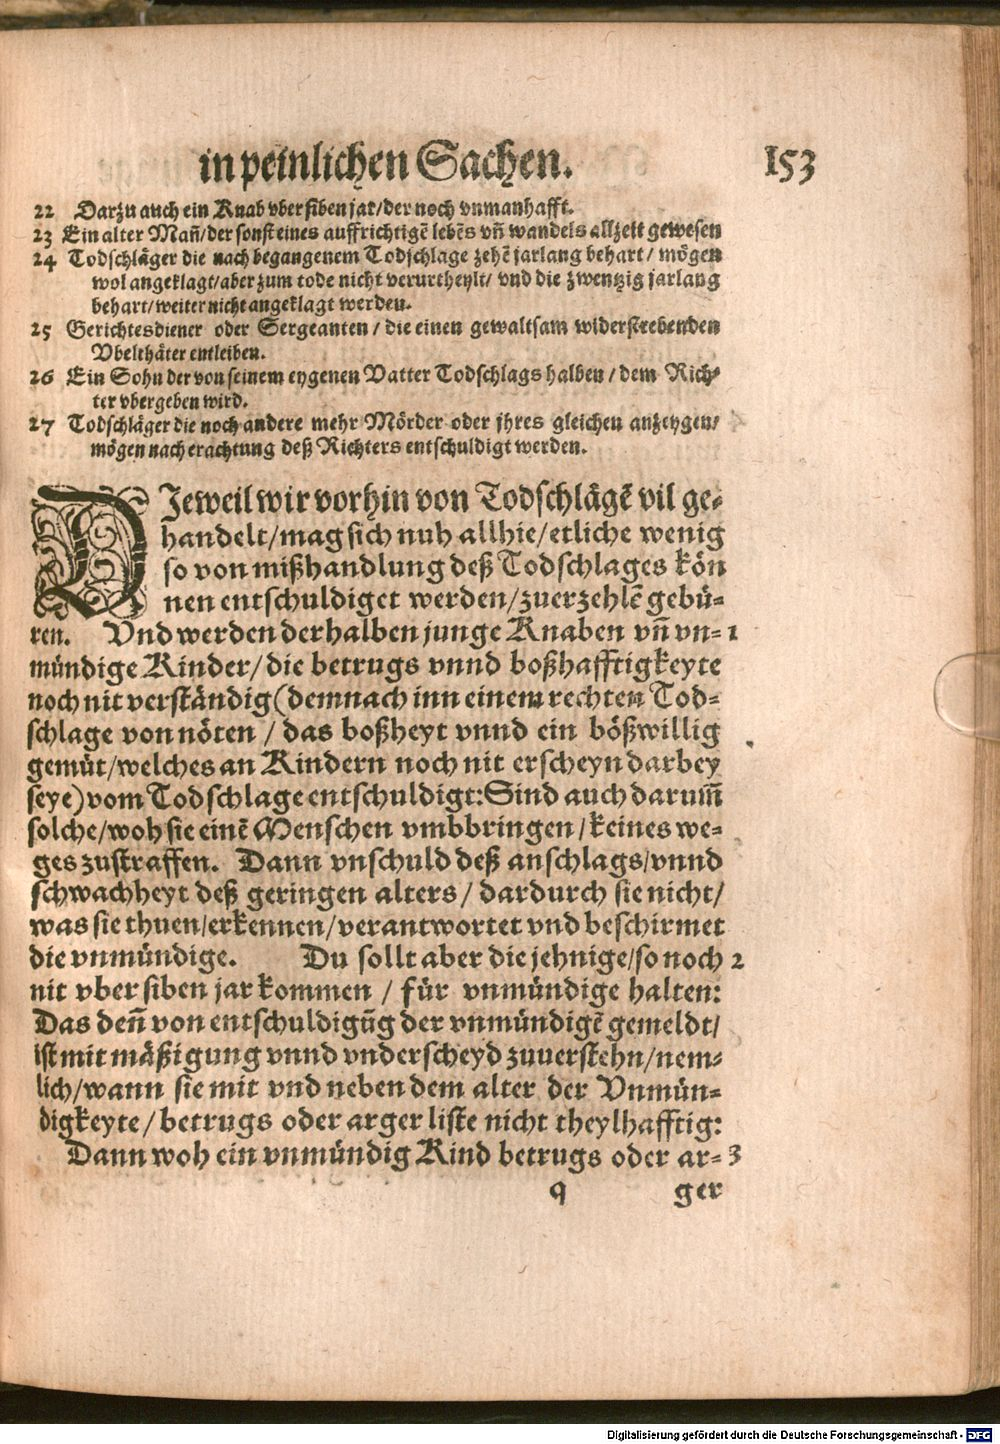 in peinlichen Sachen. 153
22 Darzu auch ein Knab vber siben jar/der noch vnmanhafft.
23 Ein alter Mañ/der sonst eines auffrichtigẽ lebẽs vñ wandels allzeit gewesen
24 Todschläger die nach begangenem Todschlage zehẽ jarlang behart/ mögen
wol angeklagt/aber zum tode nicht verurtheylt/ vnd die zwentzig jarlang
behart/weiter nicht angeklagt werden.
25 Gerichtesdiener oder Sergeanten/ die einen gewaltsam widerstrebenden
Vbelthäter entleiben.
26 Ein Sohn der von seinem eygenen Vatter Todschlags halben/ dem Rich-
ter vbergeben wird.
27 Todschläger die noch andere mehr Mörder oder jhres gleichen anzeygen/
mögen nach erachtung deß Richters entschuldigt werden.
DJeweil wir vorhin von Todschlägẽ vil ge-
handelt/mag sich nuh allhie/etliche wenig
so von mißhandlung deß Todschlages kön
nen entschuldiget werden/zuerzehlẽ gebü-
ren. Vnd werden derhalben junge Knaben vñ vn- 1
mündige Kinder/die betrugs vnnd boßhafftigkeyte
noch nit verständig(demnach inn einem rechten Tod-
schlage von nöten/ das boßheyt vnnd ein bößwillig
gemüt/welches an Kindern noch nit erscheyn darbey
seye)vom Todschlage entschuldigt:Sind auch darum̃
solche/woh sie einẽ Menschen vmbbringen/keines we-
ges zustraffen. Dann vnschuld deß anschlags/vnnd
schwachheyt deß geringen alters/ dardurch sie nicht/
was sie thuen/erkennen/verantwortet vnd beschirmet
die vnmündige. Du sollt aber die jehnige/so noch 2
nit vber siben jar kommen / für vnmündige halten:
Das deñ von entschuldigũg der vnmündigẽ gemeldt/
ist mit mäßigung vnnd vnderscheyd zuuerstehn/nem-
lich/wann sie mit vnd neben dem alter der Vnmün-
digkeyte/betrugs oder arger liste nicht theylhafftig:
Dann woh ein vnmündig Kind betrugs oder ar- 3
q ger
Digitalisierung gefördert durch die Deutsche Forschungsgemeinschaft - DFG